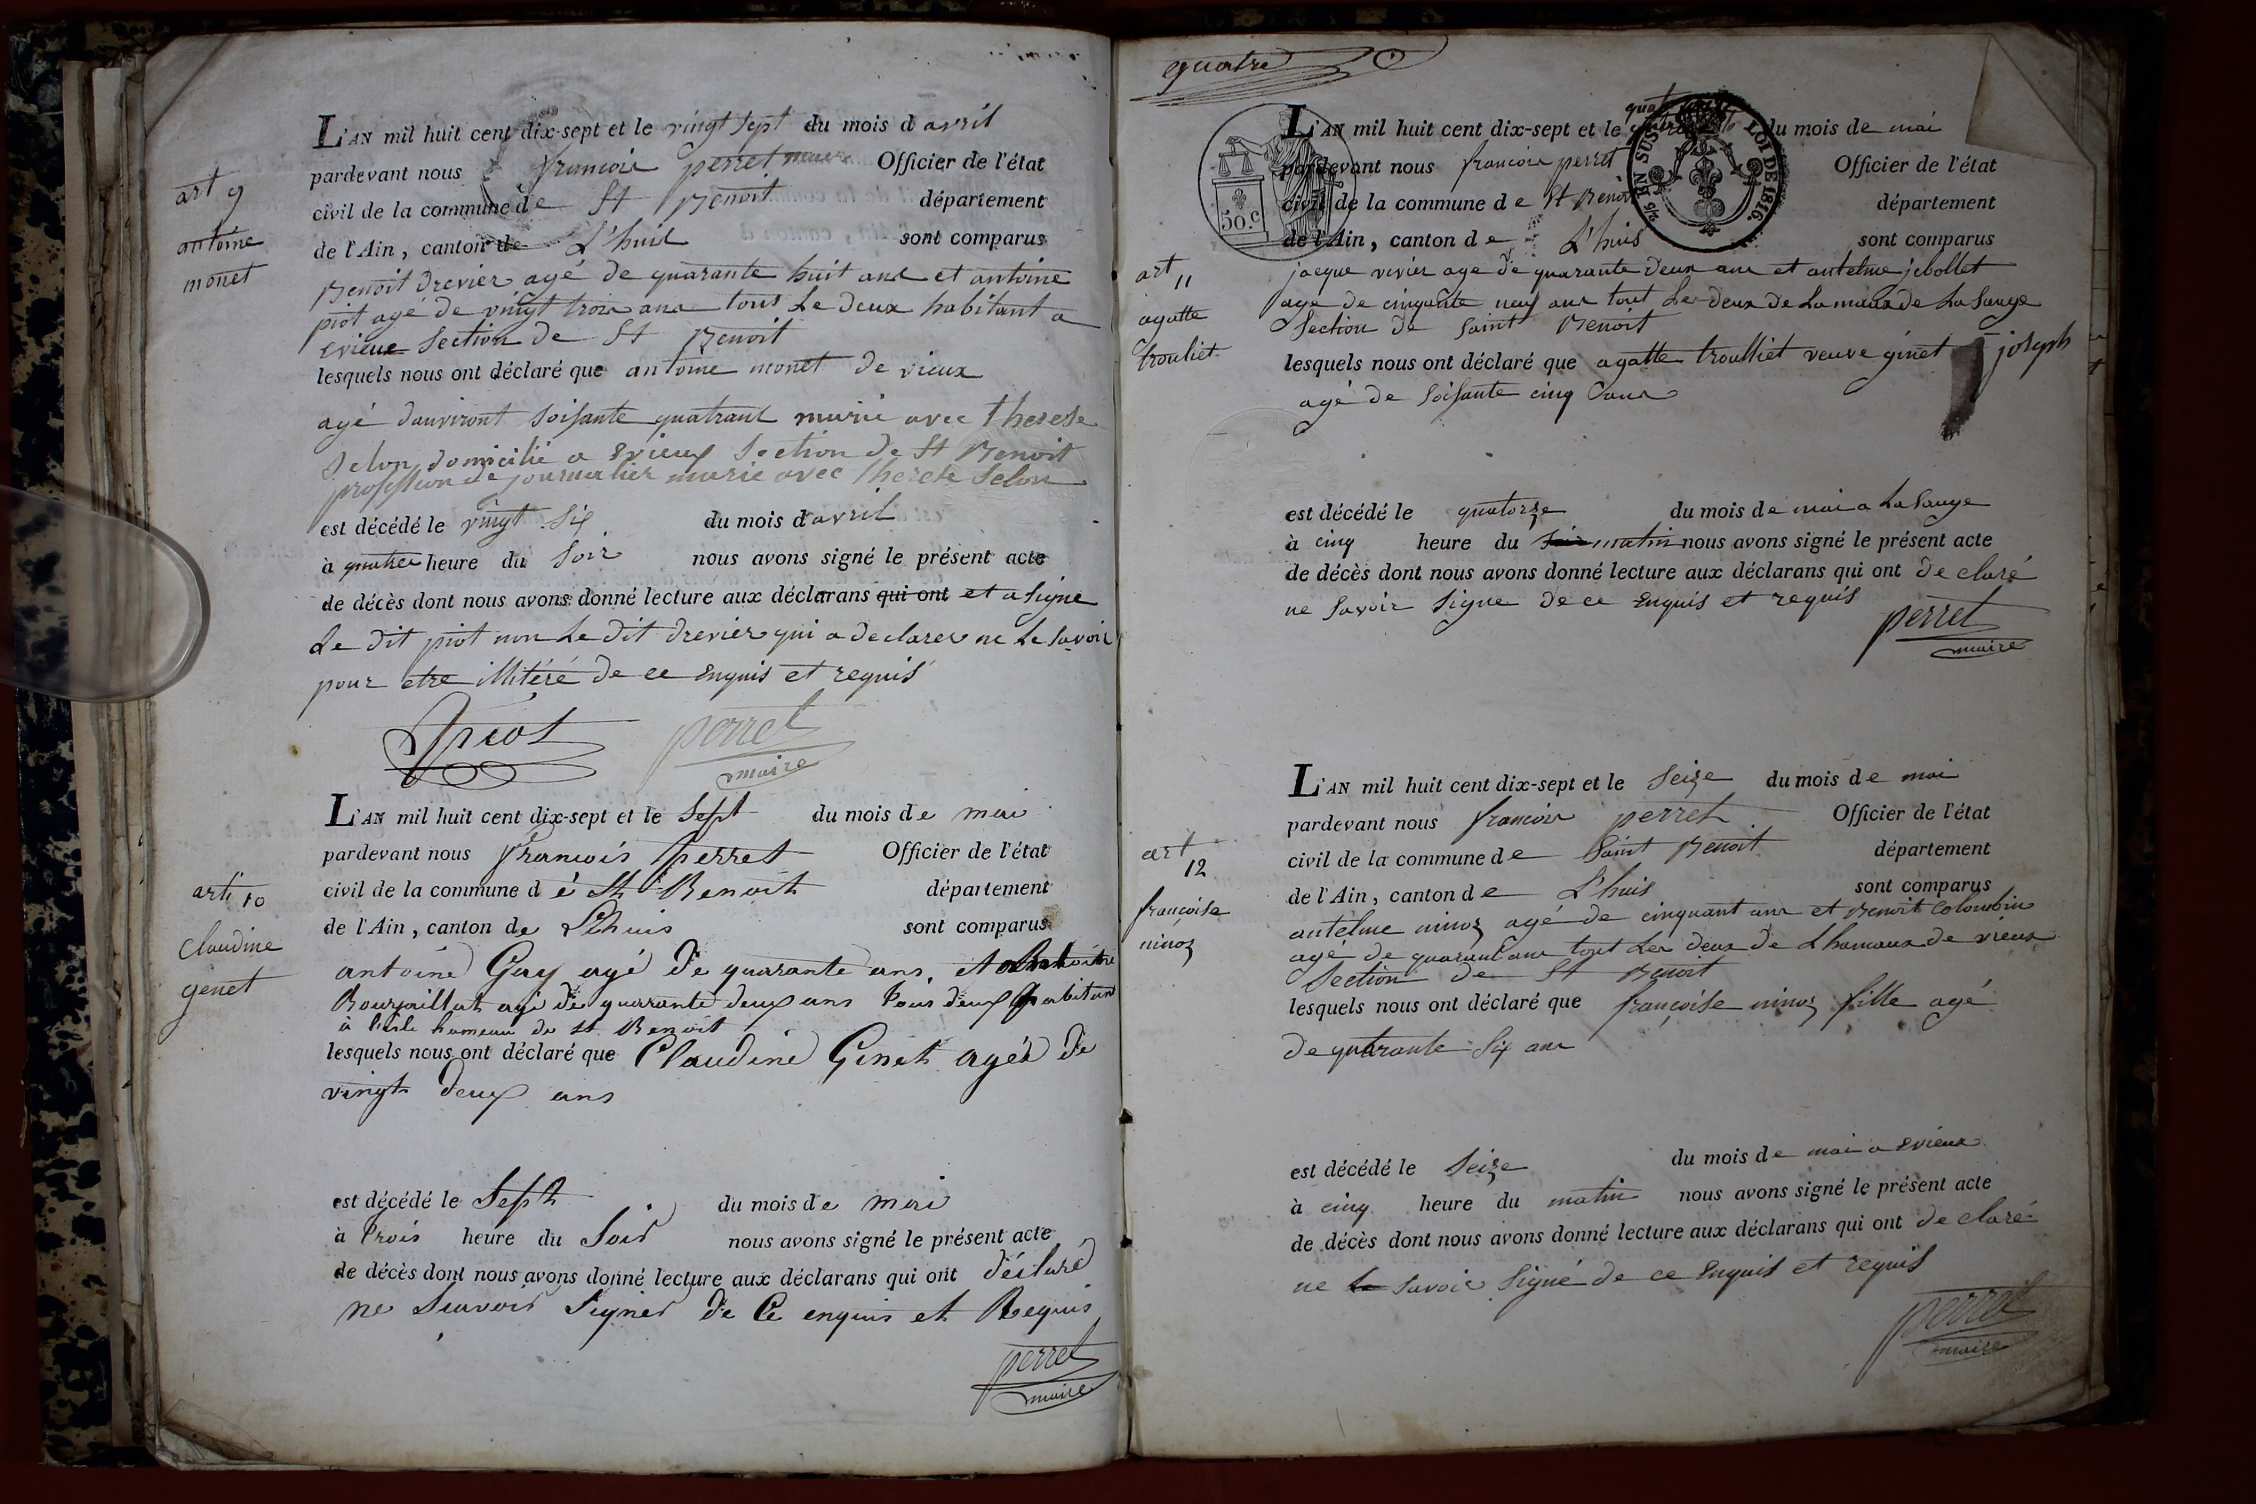 art 9
antoine
monet
L'AN mil huit cent dix-sept et le vingt sept du mois d avril
pardevant nous francois perret maire Officier de l'état
civil de la commune de St Benoit département
de l'Ain, canton de L'huis sont comparus
Benoit Drevier agé de quarante huit ans et antoine
piot agé de vingt trois ans tous Le deux habitant a
evieux Section de St Benoit
lesquels nous ont déclaré que antoine monet de vieux
agé danviront soisante quatrant marié avec therese
Selon domicilié a Evieux Section de St Benoit
profession de journalier marié avec therese Selon
est décédé le vingt six du mois d avril
à quatre heure du soir nous avons signé le présent acte
de décès dont nous avons donné lecture aux déclarans qui ont et a signe
Le dit piot non Le dit Drevier qui a declarer ne Le savoir
pour etre illitéré de ce Enquis et requis
piot perret
maire
arti 10
claudine
genet
L'AN mil huit cent dix-sept et le Sept du mois de mai
pardevant nous François perret Officier de l'état
civil de la commune d e St Benoit département
de l'Ain, canton de Lhuis sont comparus
antoine Guy agé de quarante ans, et
Bourjaillat agé de quarante deux ans tous deux habitant
à hameau de st Benoit
lesquels nous ont déclaré que Claudine Ginet agée de
vingt deux ans
est décédé le Sept du mois de mai
à trois heure du Soir nous avons signé le présent acte
de décès dont nous avons donné lecture aux déclarans qui ont déclaré
ne Scavoir Signer de Ce enquis et Requis
perret
maire
quatre
50.c
EN SUS LOI DE 1816.
art 11
agatte
trouliet
L'AN mil huit cent dix-sept et le du mois de mai
pardevant nous francois perret Officier de l'état
civil de la commune d e St Benoit département
de l'Ain, canton d e L'huis sont comparus
jacque vivier age de quarante deux ans et antelme jebollet
age de cinquante neuf ans tout Les deux de Lamaux de La Sauge
Section de Saint Benoit
lesquels nous ont déclaré que agatte troulliet veuve ginet joseph
agé de soisante cinq ans
est décédé le quatorze du mois de mai a La Sauge
à cinq heure du soir matin nous avons signé le présent acte
de décès dont nous avons donné lecture aux déclarans qui ont de claré
ne Savoir Signe de ce Enquis et requis
perret
maire
art 12
françoise
ninoz
L'AN mil huit cent dix-sept et le Seize du mois de mai
pardevant nous francois perret Officier de l'état
civil de la commune de Saint Benoit département
de l'Ain, canton de L'huis sont comparus
antelme ninoz agé de cinquant ans et Benoit Colombin
agé de quarant ans tout Les deux de Lhamaux de vieux
Section de St Benoit
lesquels nous ont déclaré que françoise ninoz fille agé
de quarante Six ans
est décédé le Seize du mois de mai a evieux
à cinq heure du matin nous avons signé le présent acte
de décès dont nous avons donné lecture aux déclarans qui ont de claré
ne Le Savoir Signé de ce Enquis et requis
perret
maire